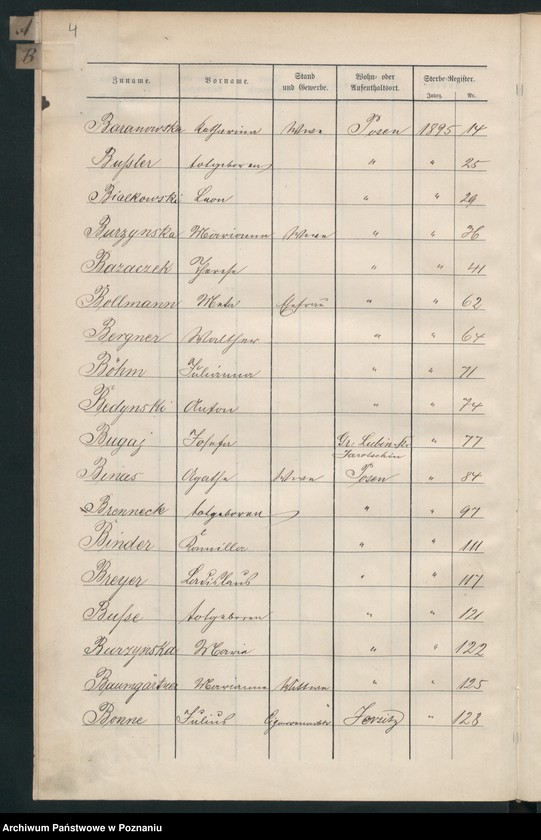 A
4
B
Zuname. Vorname. Stand und Gewerbe. Wohn- oder Aufenthaltsort. Sterbe-Register.
Jahrg. Nr.
Baranowska Katharina Wwe Posen 1895 14
Bußler totgeboren " " 25
Bialkowski Leon " " 29
Burzynska Marianna Wwe " " 36
Bazaczek Therese " " 41
Bollmann Meta Ehefrau " " 62
Bergner Walther " " 64
Böhm Julianna " " 71
Bedynski Anton " " 74
Bugaj Josefa Gr. Lubin Kr. Jarotschin " 77
Binas Agathe Wwe Posen " 84
Brenneck totgeboren " " 97
Binder Kamilla " " 111
Breyer Ladislaus " " 117
Buße totgeboren " " 121
Burzynska Marie " " 122
Baumgärtner Marianna Wittwe " " 125
Bonne Julius Jerzitz " 128
Archiwum Państwowe w Poznaniu